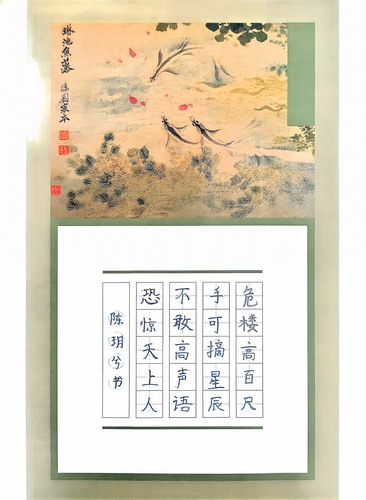 琳池魚藻
危楼高百尺
手可摘星辰
不敢高声语
恐惊天上人
陈玥兮书